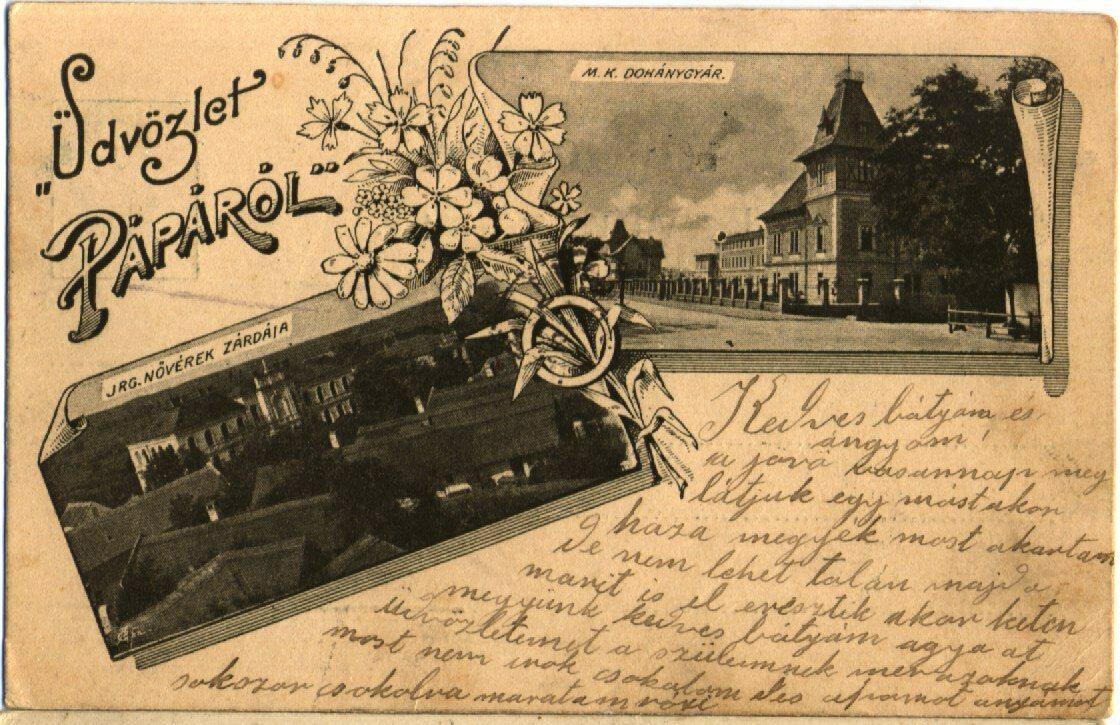 "Üdvözlet
PÁPÁRÓL"
M. K. DOHÁNYGYÁR.
JRG. NŐVÉREK ZÁRDÁJA
Kedves bátyám és
ángyom!
a jövö vasannap meg
látjuk egy mást akkor
haza megyek most akartam
de nem lehet talán majd a
marit is el eresztik akor keten
megyünk kedves bátyám agya át
üdvözletemet a szüleimnek mert azoknak
most nem irok csokolom édes apámot anyámot
sokszor csokolva maratam